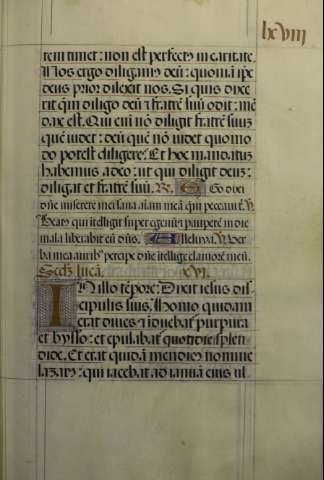 lxviii
tem timet: non est perfectus in caritate.
Nos ergo diligamus deū: quoniā ipe
deus prior dilexit nos. Si quis dixe
rit qm̄ diligo deū ⁊ fratrē suū odit: mē
dax est. Qui eni nō diligit fratrē suū
quē uidet: deū quē nō uidet quomo
do potest diligere? Et hoc mandatū
habemus a deo: ut qui diligit deum:
diligat et fratrē suū. R. Ego dixi
dn̄e miserere mei sana aīam meā qui peccaui t. V.
Beatus qui ītelligit super egenū ⁊ pauperē in die
mala liberabit eū dn̄s. Alleluya. V. Ver
ba mea auribus percipe dn̄e ītellige clamorē meū.
Scdm lucā. xvi.
In illo tēpore: Dixit iesus dis
cipulis suis. Homo quidam
erat diues ⁊ īduebat purpura
et bysso: et epulabat quotidie splen
dide. Et erat quidā mendicus nomine
lazarus: qui iacebat ad ianuā eius ul